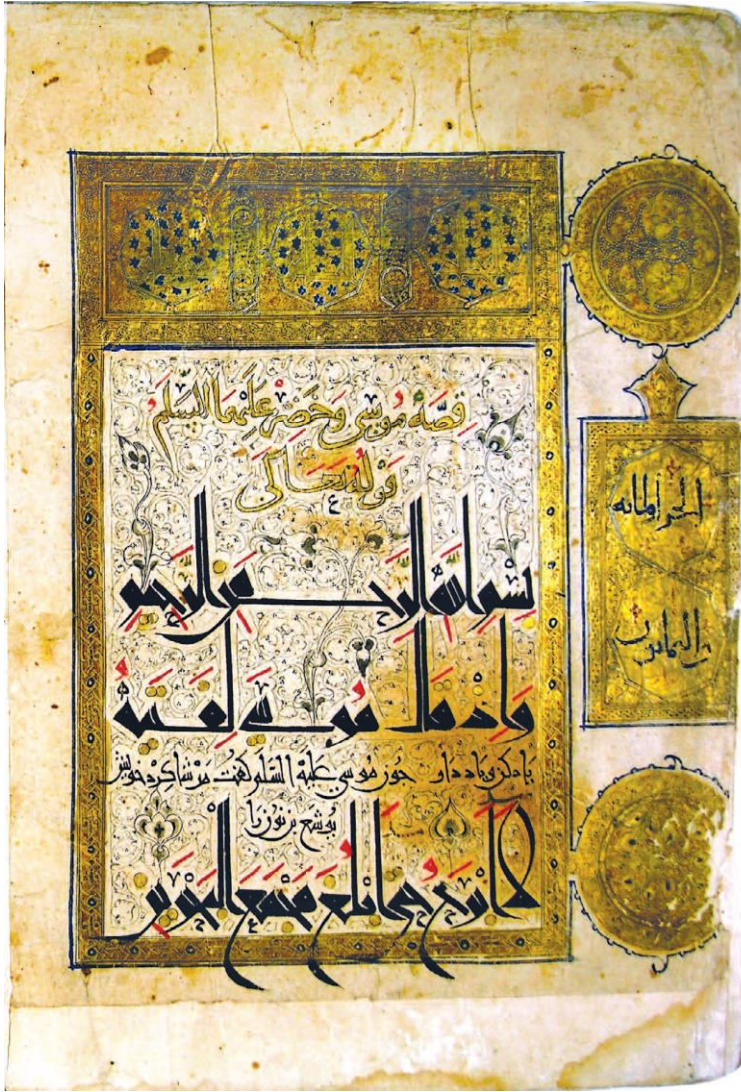 قِصَّةُ مُوسَى وَخَضِرٍ عَلَيْهِمَا السَّلَمُ
قَوْلُهُ تَعَالَى
ع
بِسْمِ اللّٰهِ الرَّحْمٰنِ الرَّحِيمِ
وَإِذْ قَالَ مُوسَى لِفَتَىهُ
یاد کن و یاد داو حون موسی علیه السلم کفت مر شاکرد خویش
یوشع بن نون را
لَا أَبْرَحُ حَتَّى أَبْلُغَ مَجْمَعَ الْبَحْرَيْنِ
الجز المائه
والثمانون